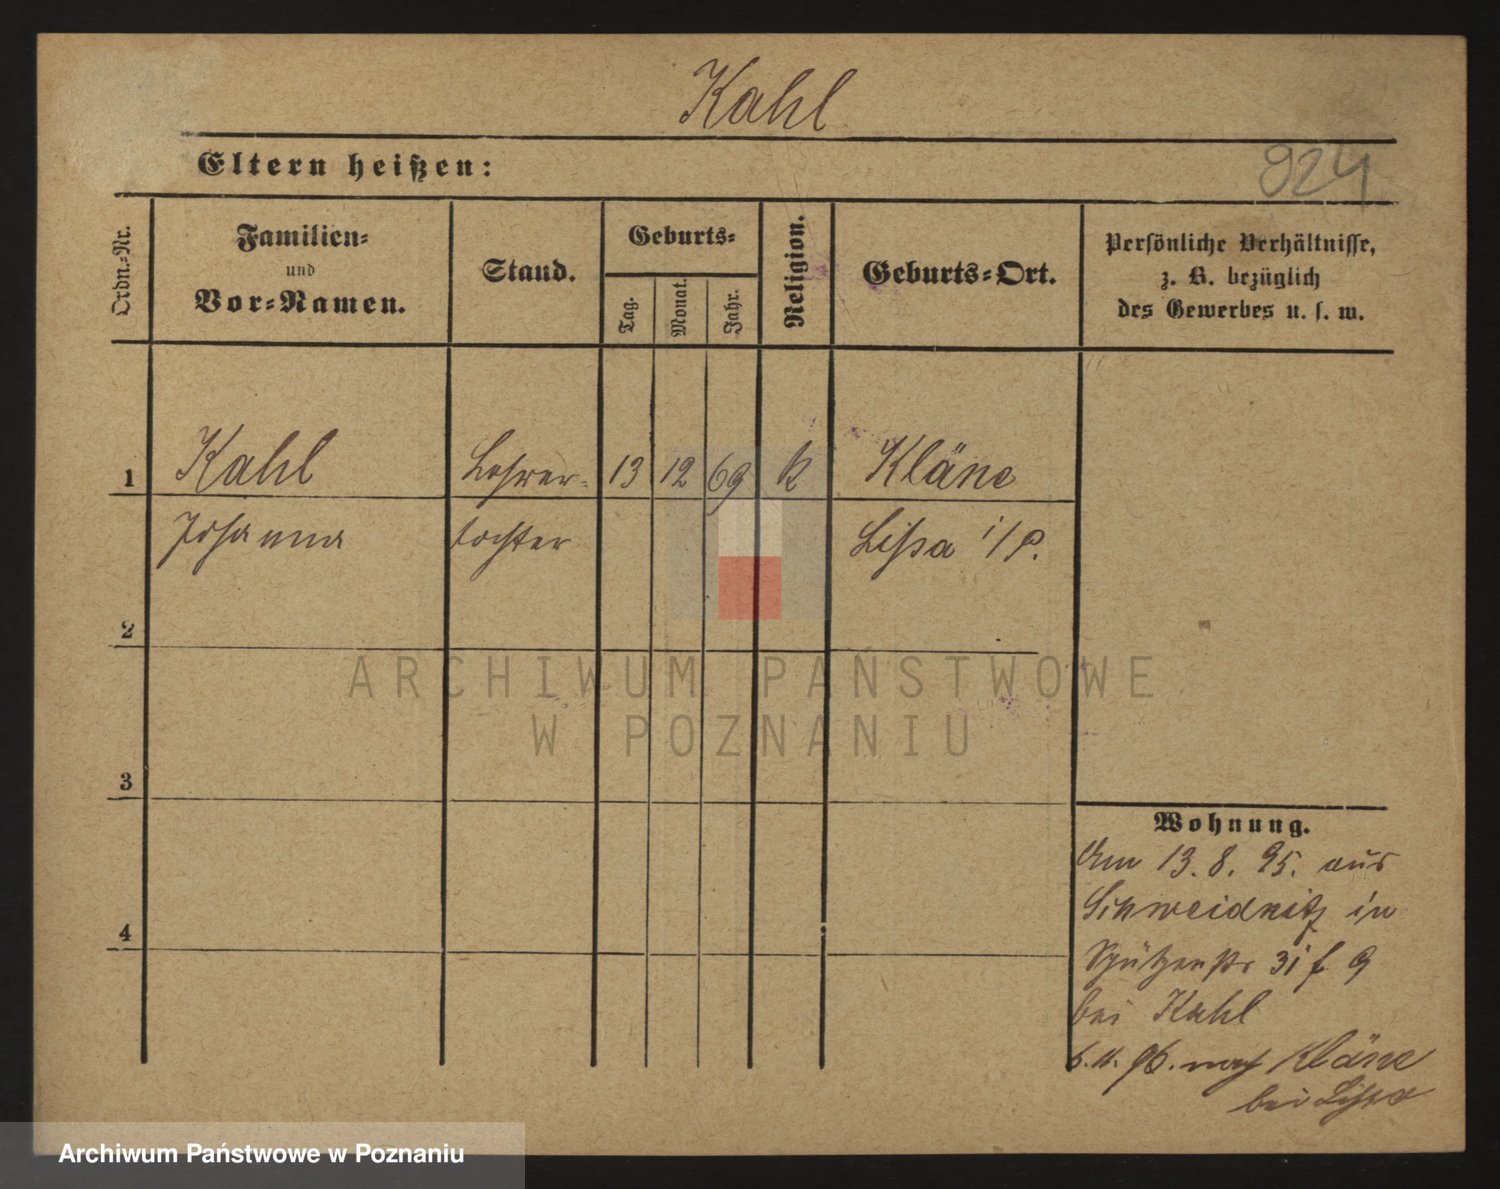 Kahl
Eltern heißen:
924
Ordn.-Nr.
Familien-
und
Vor-Namen.
Stand.
Geburts-
Tag.
Monat.
Jahr.
Religion.
Geburts-Ort.
Persönliche Verhältnisse,
z. B. bezüglich
des Gewerbes u. s. w.
1 Kahl Lehrer- 13 12 69 k Kläne
Johanna tochter Lissa i/P.
2
3
4
Wohnung.
Am 13. 8. 95. aus
Schweidnitz in
Schützenstr 31 9
bei Kahl
96. nach Kläne
bei Lissa
ARCHIWUM PAŃSTWOWE
W POZNANIU
Archiwum Państwowe w Poznaniu